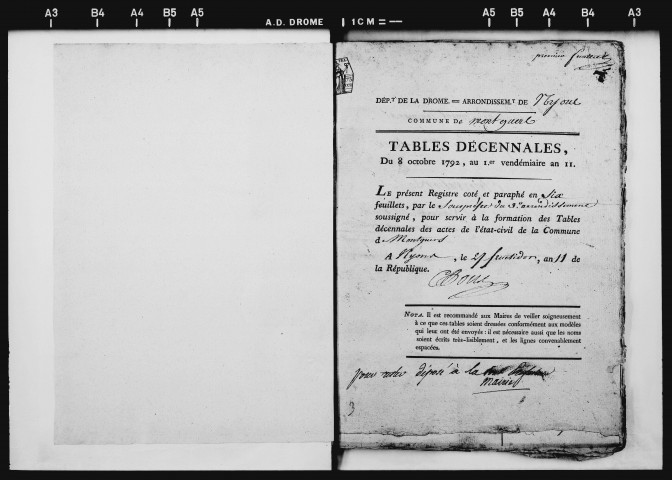 A3 B4 A4 B5 A5 A5 B5 A4 B4 A3
A.D. DROME 1 CM =
premier feuillet
DÉP.T DE LA DROME. == ARRONDISSEM.T DE Nyons
COMMUNE De Montguers
TABLES DÉCENNALES,
Du 8 octobre 1792, au 1.er vendémiaire an 11.
LE présent Registre coté et paraphé en Six
feuillets, par le Souspréfet du 3e arrondissement
soussigné, pour servir à la formation des Tables
décennales des actes de l'état-civil de la Commune
d Montguers
A Nyons, le 29 fructidor, an 11 de
la République.
NOTA. Il est recommandé aux Maires de veiller soigneusement
à ce que ces tables soient dressées conformément aux modèles
qui leur ont été envoyés : il est nécessaire aussi que les noms
soient écrits très-lisiblement, et les lignes convenablement
espacées.
pour rester déposé à la
Mairie
3